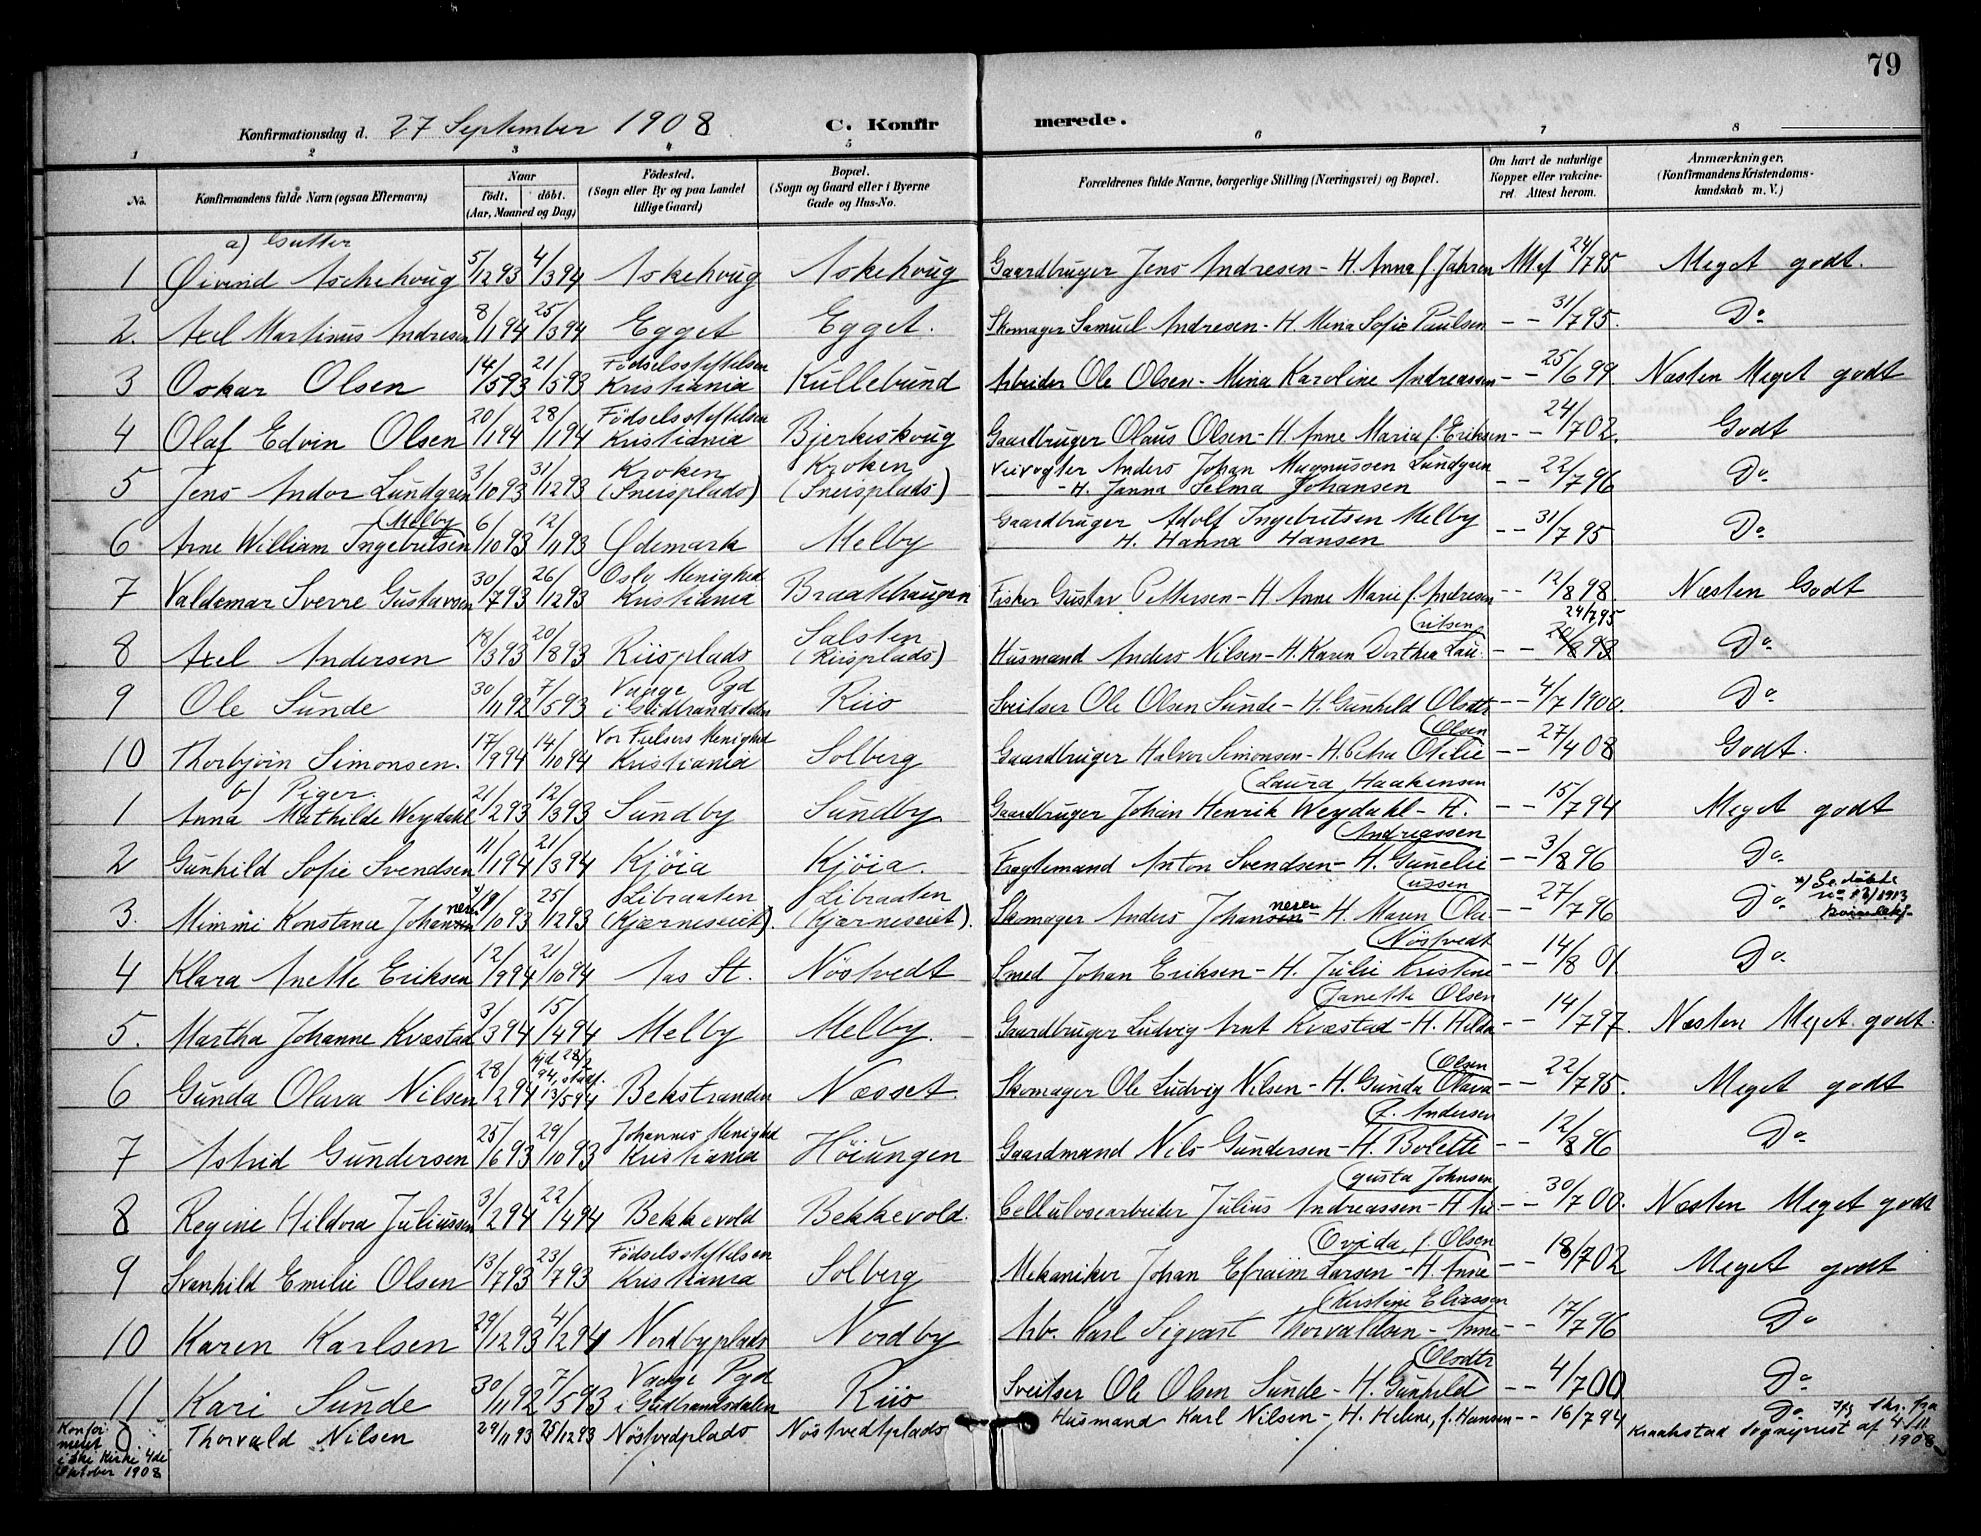 79
Konfirmationsdag d. 27 September 1908 C. Konfir merede.
1 2 3 4 5 6 7 8
No. Konfirmandens fulde Navn (ogsaa Efternavn) Naar födt. döbt. (Aar, Maaned og Dag) Födested. (Sogn eller By og paa Landet tillige Gaard) Bopæl. (Sogn og Gaard eller i Byerne Gade og Hus-No. Forældrenes fulde Navne, borgerlige Stilling (Næringsvei) og Bopæl. Om havt de naturlige Kopper eller vakcineret. Attest herom. Anmærkninger. (Konfirmandens Kristendomskundskab m. V.)
a) Gutter
1 Øivind Aschehoug 5/12 93 4/3 94 Askehoug Askehoug Gaardbruger Jens Andresen - H. Anna f. Jahren Mef 24/7 95 Meget godt.
2. Axel Martinus Andresen 8/1 94 25/3 94 Egget Egget. Skomager Samuel Andresen - H. Mina Sofie Paulsen - - 31/7 95. Do
3 Oskar Olsen 14/5 93 21/5 93 Födselsstiftelsen Kristiania Kullebund Arbeider Ole Olsen - Mina Karoline Andreassen - - 25/6 99 Næsten Meget godt
4 Olaf Edvin Olsen 20/1 94 28/1 94 Födselsstiftelsen Kristiania Bjerkeskoug Gaardbruger Olaus Olsen - H. Anne Maria f. Eriksen - - 24/7 02. Godt
5 Jens Andor Lundgren 3/10 93 31/12 93 Kroken (Sneisplads) Kroken (Sneisplads) Veivogter Anders Johan Magnussen Lundgren - H. Janna Selma Johansen - - 22/7 96 Do
6 Arne William Ingebretsen (Melby 6/10 93 12/11 93 Ødemark Melby Gaardbruger Adolf Ingebretsen Melby H. Hanna Hansen - - 31/7 95 Do
7 Valdemar Sverre Gustavsen 30/7 93 26/12 93 Oslo Menighed Kristiania Braatehaugen Fisker Gustav Pettersen - H Anne Marie f. Andresen - - 12/8 98. Næsten Godt
8 Axel Andersen 18/3 93 20/8 93 Riisplads Salsten (Riisplads) Husmand Anders Nilsen - H. Karen Dorthea Lau- (ritsen - - 24/7 95 Do
9 Ole Sunde 30/11 92 7/5 93 Vaage Pgd i Gudbrandsdalen Riis Sveitser Ole Olsen Sunde - H. Gunhild Olsdtr - - 4/7 1900. Do
10 Thorbjörn Simonsen. 17/9 94 14/10 94 Vor Frelsers Menighed Kristiania Solberg Gaardbruger Halvor Simonsen - H. Petra Otilie (Olsen - - 27/4 08 Godt.
b) Piger.
1 Anna Mathilde Weydahl 21/2 93 12/3 93 Sundby Sundby Gaardbruger Johan Henrik Weydahl - H. (Laura Haakensen - - 15/7 94 Meget godt
2 Gunhild Sofie Svendsen 11/1 94 21/3 94 Kjöia Kjöia. Fragtemand Anton Svendsen - H. Gunelie (Andreassen - - 3/8 96 Do
3. Mimmi Konstance Johannesen 19/10 93 25/12 93 Libraaten (Kjærneseiet). Libraaten (Kjærneseiet). Skomager Anders Johannesen - H. Maren Ole- (ussen - - 27/7 96 Do *) Se döbte no 12/1913
4 Klara Anette Eriksen 12/9 94 21/10 94 Aas St. Nöstvedt Smed Johan Eriksen - H. Julie Kristine (Nöstvedt - - 14/8 01. Do
5. Martha Johanne Kvæstad 3/3 94 15/4 94 Melby Melby. Gaardbruger Ludvig Arnt Kvæstad - H. Hilda (Janette Olsen - - 14/7 97. Næsten Meget godt.
6 Gunda Olava Nilsen 28/2 94 hjd 28/2 94, stadf. 13/5 94 Bekstranden Næsset. Skomager Ole Ludvig Nilsen - H. Gunda Olava (Olsen - - 22/7 95. Meget godt
7 Astrid Gundersen 25/6 93 29/10 93 Johannes Menighed Kristiania Höiungen Gaardmand Nils Gundersen - H. Bolette (f. Andersen - - 12/8 96 Do
8 Regine Hildora Juliussen 3/2 94 22/4 94 Bekkevold Bekkevold. Cellulosearbeider Julius Andreassen - H Au- (gusta Johnsen - - 30/7 00. Næsten Meget godt
9 Svanhild Emilie Olsen 13/7 93 23/7 93 Födselsstiftelsen Kristiania Solberg Mekaniker Johan Efraim Larsen - H. Anne (Ovida f. Olsen - - 18/7 02 Meget godt
10 Karen Karlsen 29/12 93 4/2 94 Nordbyplads Nordby Arb. Karl Sigvart Thorvaldsen - Anne (Kirstine Eliassen - - 17/7 96 Do
11 Kari Sunde 30/11 92 7/5 93 Vaage Pgd i Gudbrandsdalen Riis Sveitser Ole Olsen Sunde - H. Gunhild (Olsdtr - - 4/7 00 Do
Konfirmeret i Ski Kirke 4de Oktober 1908 Thorvald Nilsen 29/11 93 25/12 93 Nöstvedtplads Nöstvedtplads Husmand Karl Nilsen - H. Helene, f. Hansen - - 16/7 94 Do Ifg. Skr. fra Kraakstad Sogneprest af 4/11 1908.